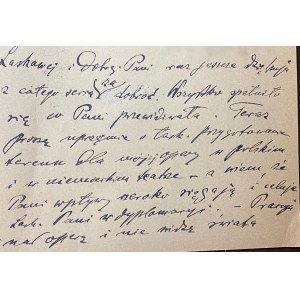 Łaskawej i Dobrej Pani raz jeszcze dziękuję
z całego serca za dobroć. Wszystko spełniło
się co Pani przewidziała. Teraz
proszę uprzejmie o łask. przygotowanie
terenu dla mojej opery w polskim
i w niemieckim teatrze – a wiem że
Pani wpływy szeroko sięgają i celuje
Łask. Pani w dyplomacji. – Pracuję
nad operą i nie widzę świata